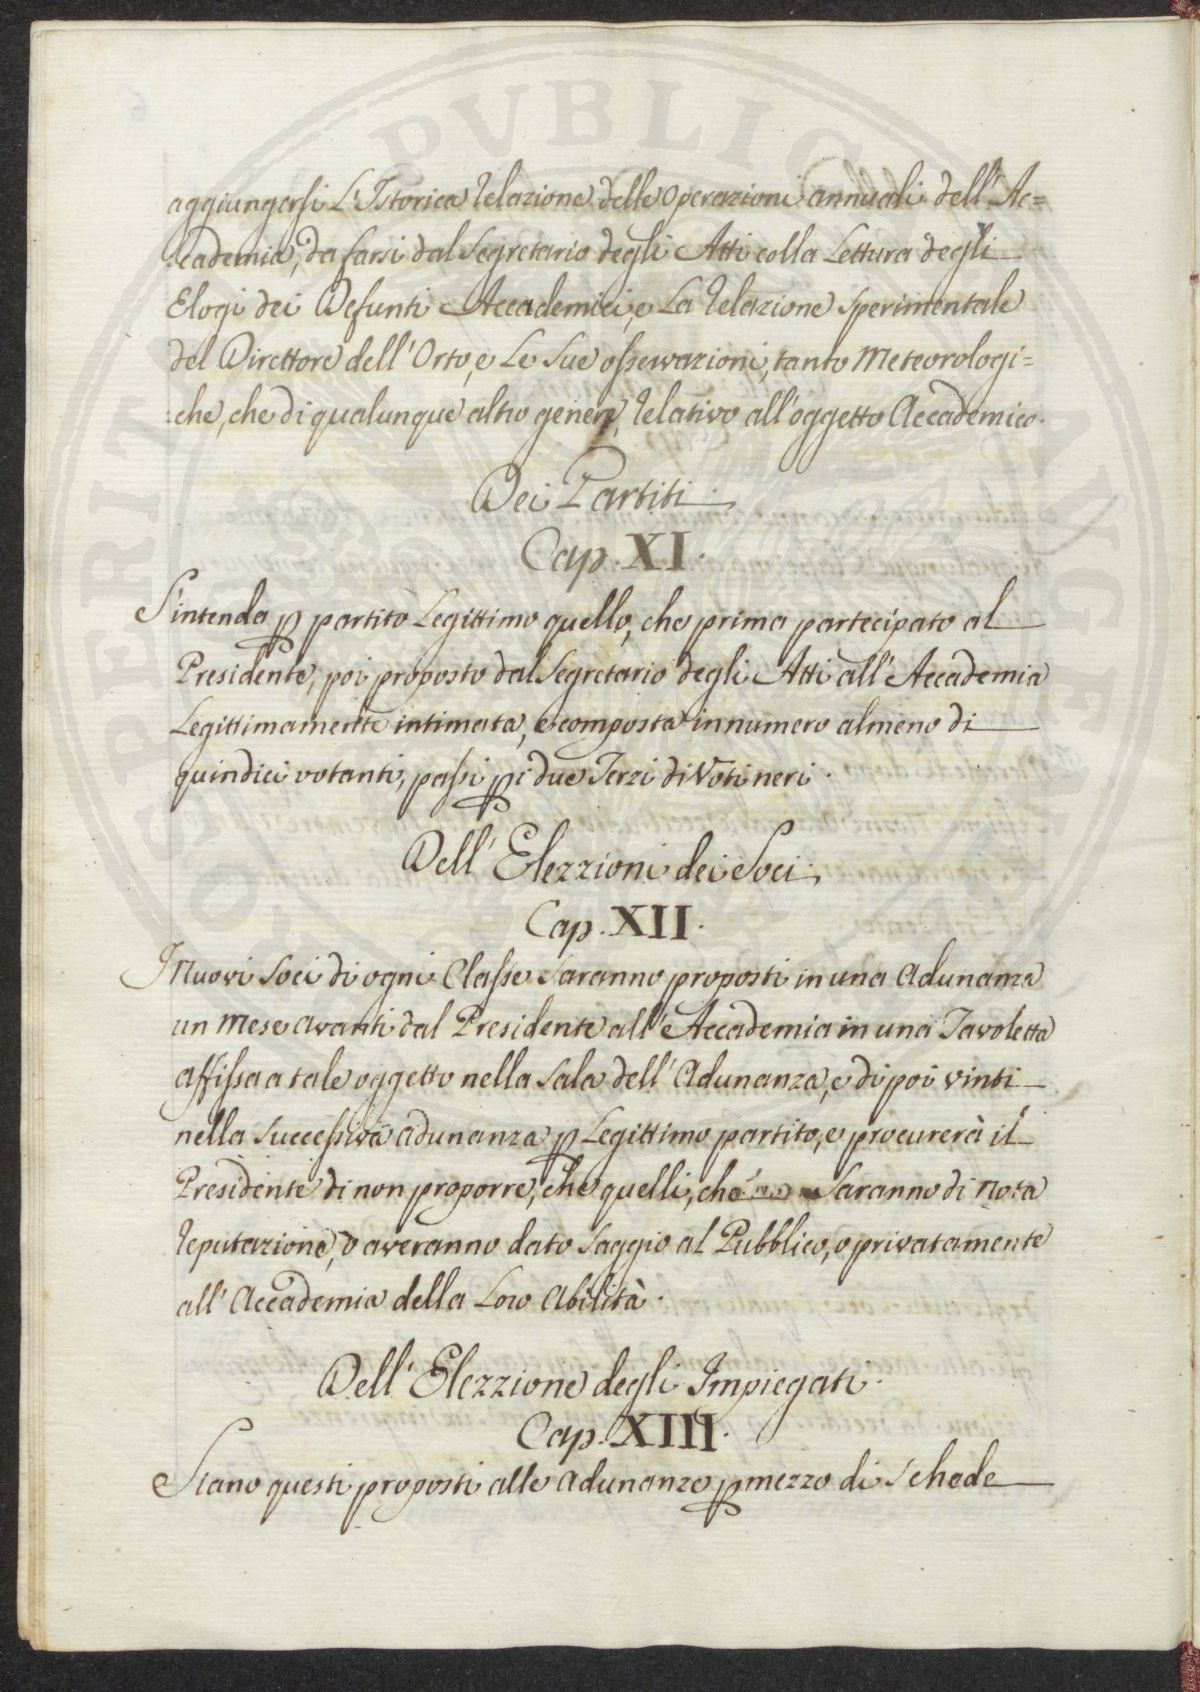 aggiungersi L'Istorica Relazione delle operazioni annuali dell'Ac=
:cademia, da farsi dal Segretario degli Atti colla Lettura degli
Elogi dei Defunti Accademici, e La Relazione Sperimentale
del Direttore dell'Orto, e Le Sue osservazioni, tanto Meteorologi=
:che, che di qualunque altro genere, Relativo all'oggetto Accademico.
Dei Partiti.
Cap. XI.
S'intenda p partito Legittimo quello, che prima partecipato al
Presidente, poi proposto dal Segretario degli Atti all'Accademia
Legittimamente intimata, e composta in numero almeno di
quindici votanti, passi p i due Terzi di Voti neri.
Dell'Elezzioni dei Soci.
Cap. XII.
I Nuovi Soci di ogni Classe Saranno proposti in una Adunanza
un Mese avanti dal Presidente all'Accademia in una Tavoletta
affissa a tale oggetto nella Sala dell'Adunanza, e di poi vinti
nella Successiva adunanza p Legittimo partito, e procurerà il
Presidente di non proporre, che quelli, che Saranno di Nota
Reputazione, o averanno dato Saggio al Pubblico, o privatamente
all'Accademia della Loro Abilità.
Dell'Elezzione degli Impiegati.
Cap. XIII.
Siano questi proposti alle Adunanze p mezzo di Schede